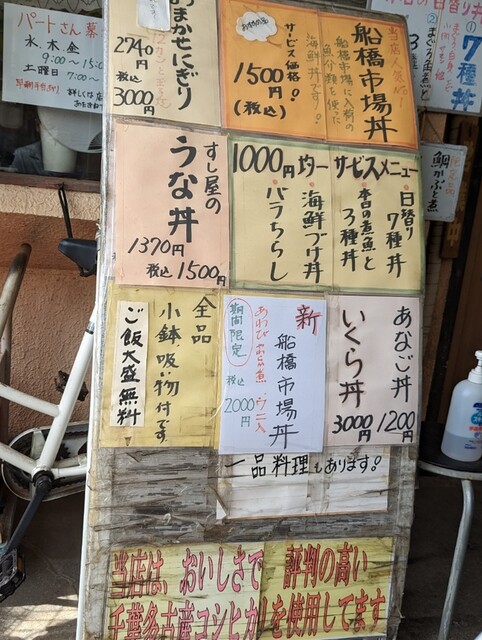 パートさん募
水、木、金
9:00〜15:0
土曜日 7:00〜
まかせにぎり
2740円
税込
3000円
当店人気No1
船橋市場丼
船橋市場に入荷の
魚介類を使った
海鮮丼です!
サービス価格!
1500円
(税込)
①
7種丼
②
日替り丼
鯛かぶと煮
すし屋の
うな丼
1370円
税込 1500円
サービスメニュー
・日替り
7種丼
・本日の煮魚と
3種丼
1000円均一
・海鮮づけ丼
・バラちらし
全品
小鉢吸い物付です。
ご飯大盛無料
新
船橋市場丼
あわびやわらか煮 ウニ入
期間限定
税込
2000円
あなご丼
1200円
いくら丼
3000円
一品料理もあります!
当店は、おいしさで 評判の高い
千葉多古産コシヒカリを使用してます